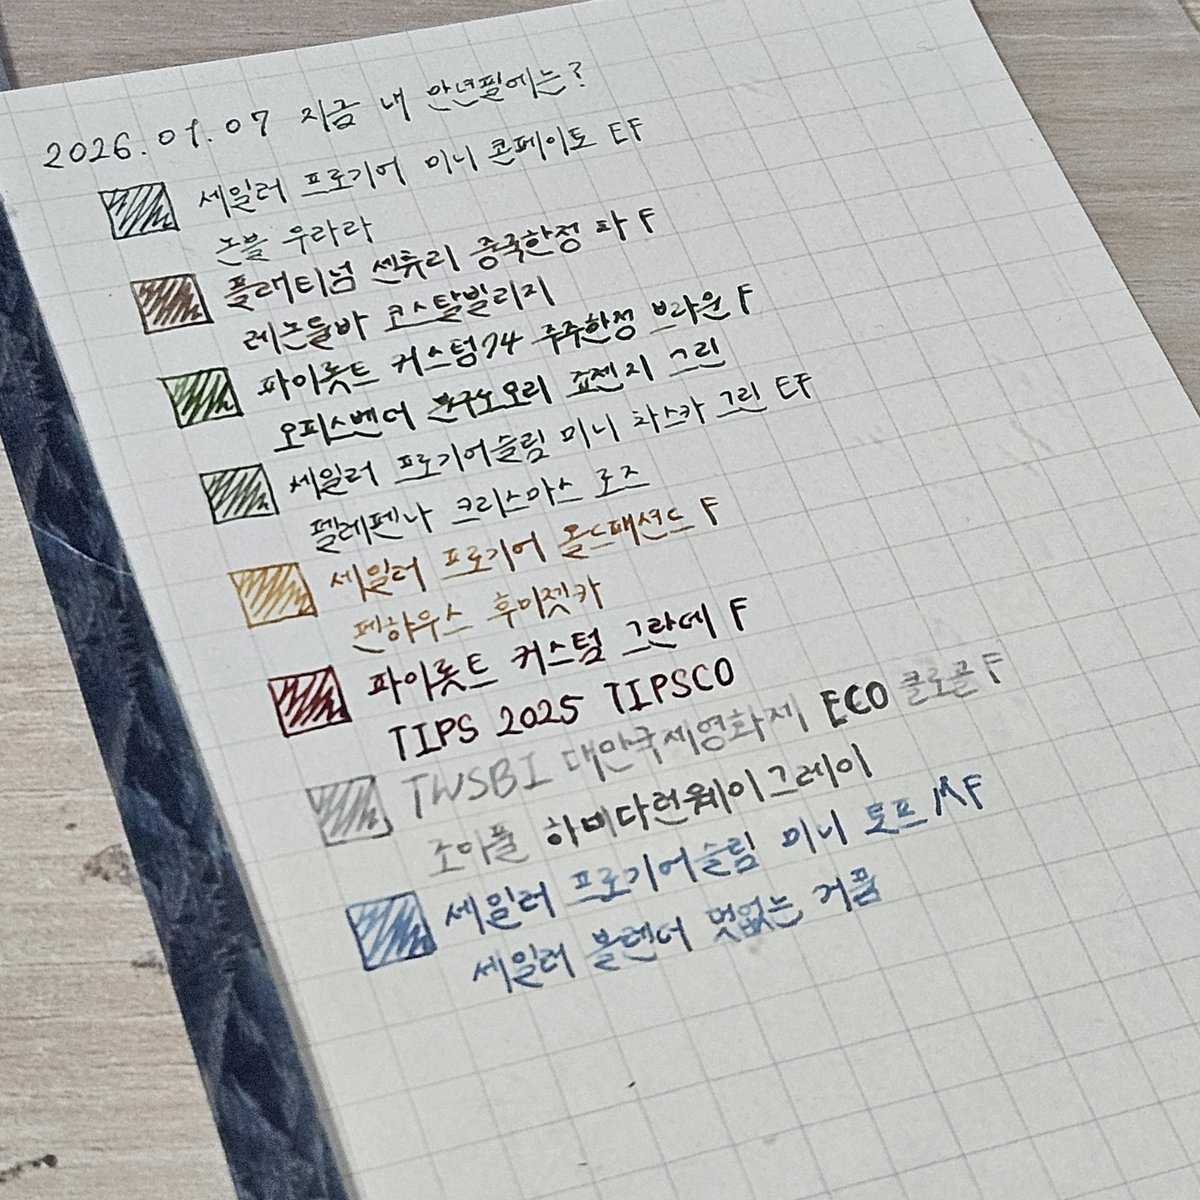 2026.01.07 지금 내 만년필에는?
세일러 프로기어 미니 콘페이토 EF
논블 우라라
플래티넘 센츄리 중국한정 파 F
레논툴바 코스탈빌리지
파이롯트 커스텀74 주주한정 브라운 F
오피스벤더 분구노오리 죠젠지 그린
세일러 프로기어슬림 미니 차스카 그린 EF
펠레펜나 크리스마스 로즈
세일러 프로기어 올드패션드 F
펜하우스 후미젯카
파이롯트 커스텀 그란데 F
TIPS 2025 TIPSCO
TWSBI 대만국제영화제 ECO 클로콜 F
조이풀 하비다런웨이그레이
세일러 프로기어슬림 미니 토프 MF
세일러 블렌더 멋없는 거품